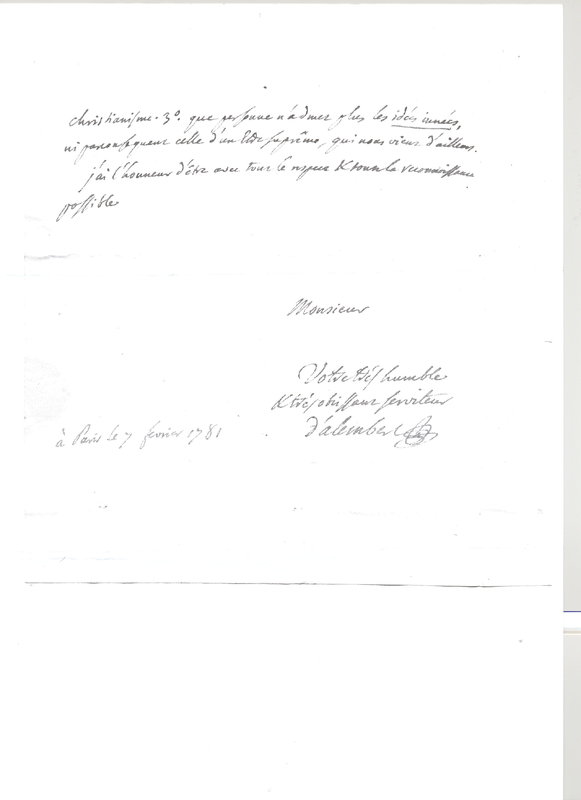 christianisme. 3º. que personne n'admet plus les idées innées,
ni par conséquent celle d'un Etre suprême, qui nous vient d'ailleurs.
j'ai l'honneur d'être avec tout le respect & toute la reconnoissance
possible
Monsieur
Votre très humble
& très obéissant serviteur
D'alembert
à Paris le 7 fevrier 1781